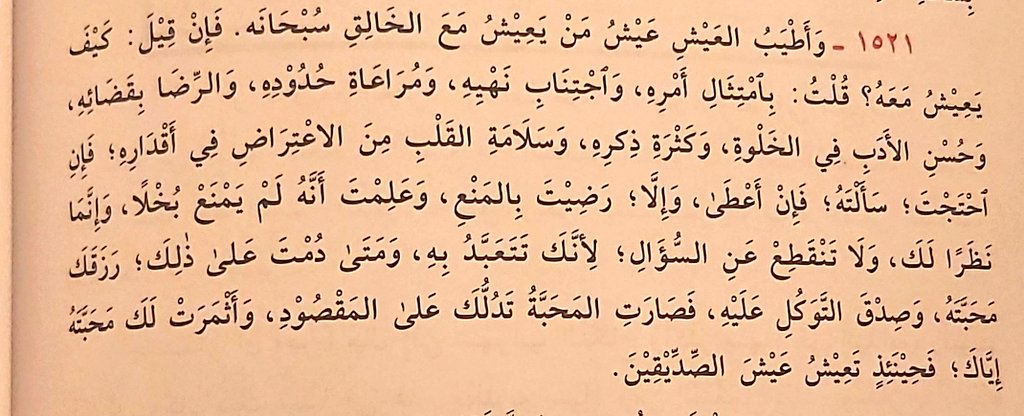 ١٥٢١ ـ وَأَطْيَبُ العَيْشِ عَيْشُ مَنْ يَعِيْشُ مَعَ الخَالِقِ سُبْحَانَه. فَإِنْ قِيْلَ: كَيْفَ
يَعِيْشُ مَعَهُ؟ قُلْتُ: بِٱمْتِثَالِ أَمْرِهِ، وَٱجْتِنَابِ نَهْيِهِ، وَمُرَاعَاةِ حُدُوْدِهِ، وَالرِّضَا بِقَضَائِهِ،
وَحُسْنِ الأَدَبِ فِي الخَلْوةِ، وَكَثْرَةِ ذِكرِهِ، وَسَلَامَةِ القَلْبِ مِنَ الاعْتِرَاضِ فِي أَقْدَارِهِ؛ فَإِنِ
ٱحْتَجْتَ؛ سَأَلْتَهُ؛ فَإِنْ أَعْطَىٰ، وَإِلَّا؛ رَضِيْتَ بِالمَنْعِ، وَعَلِمْتَ أَنَّهُ لَمْ يَمْنَعْ بُخْلًا، وَإِنَّمَا
نَظَرًا لَكَ، وَلَا تَنْقَطِعْ عَنِ السُّؤَالِ؛ لِأنَّكَ تَتَعَبَّدُ بِهِ، وَمَتَىٰ دُمْتَ عَلىٰ ذٰلِكَ؛ رَزَقَكَ
مَحَبَّتَهُ، وَصِدْقَ التَّوَكُلِ عَلَيْهِ، فَصَارَتِ المَحَبَّةُ تَدُلُّكَ عَلىٰ المَقْصُوْدِ، وَأَثْمَرَتْ لَكَ مَحَبَّتَهُ
إِيَّاكَ؛ فَحِيْنَئِذٍ تَعِيْشُ عَيْشَ الصِّدِّيْقِيْنَ.